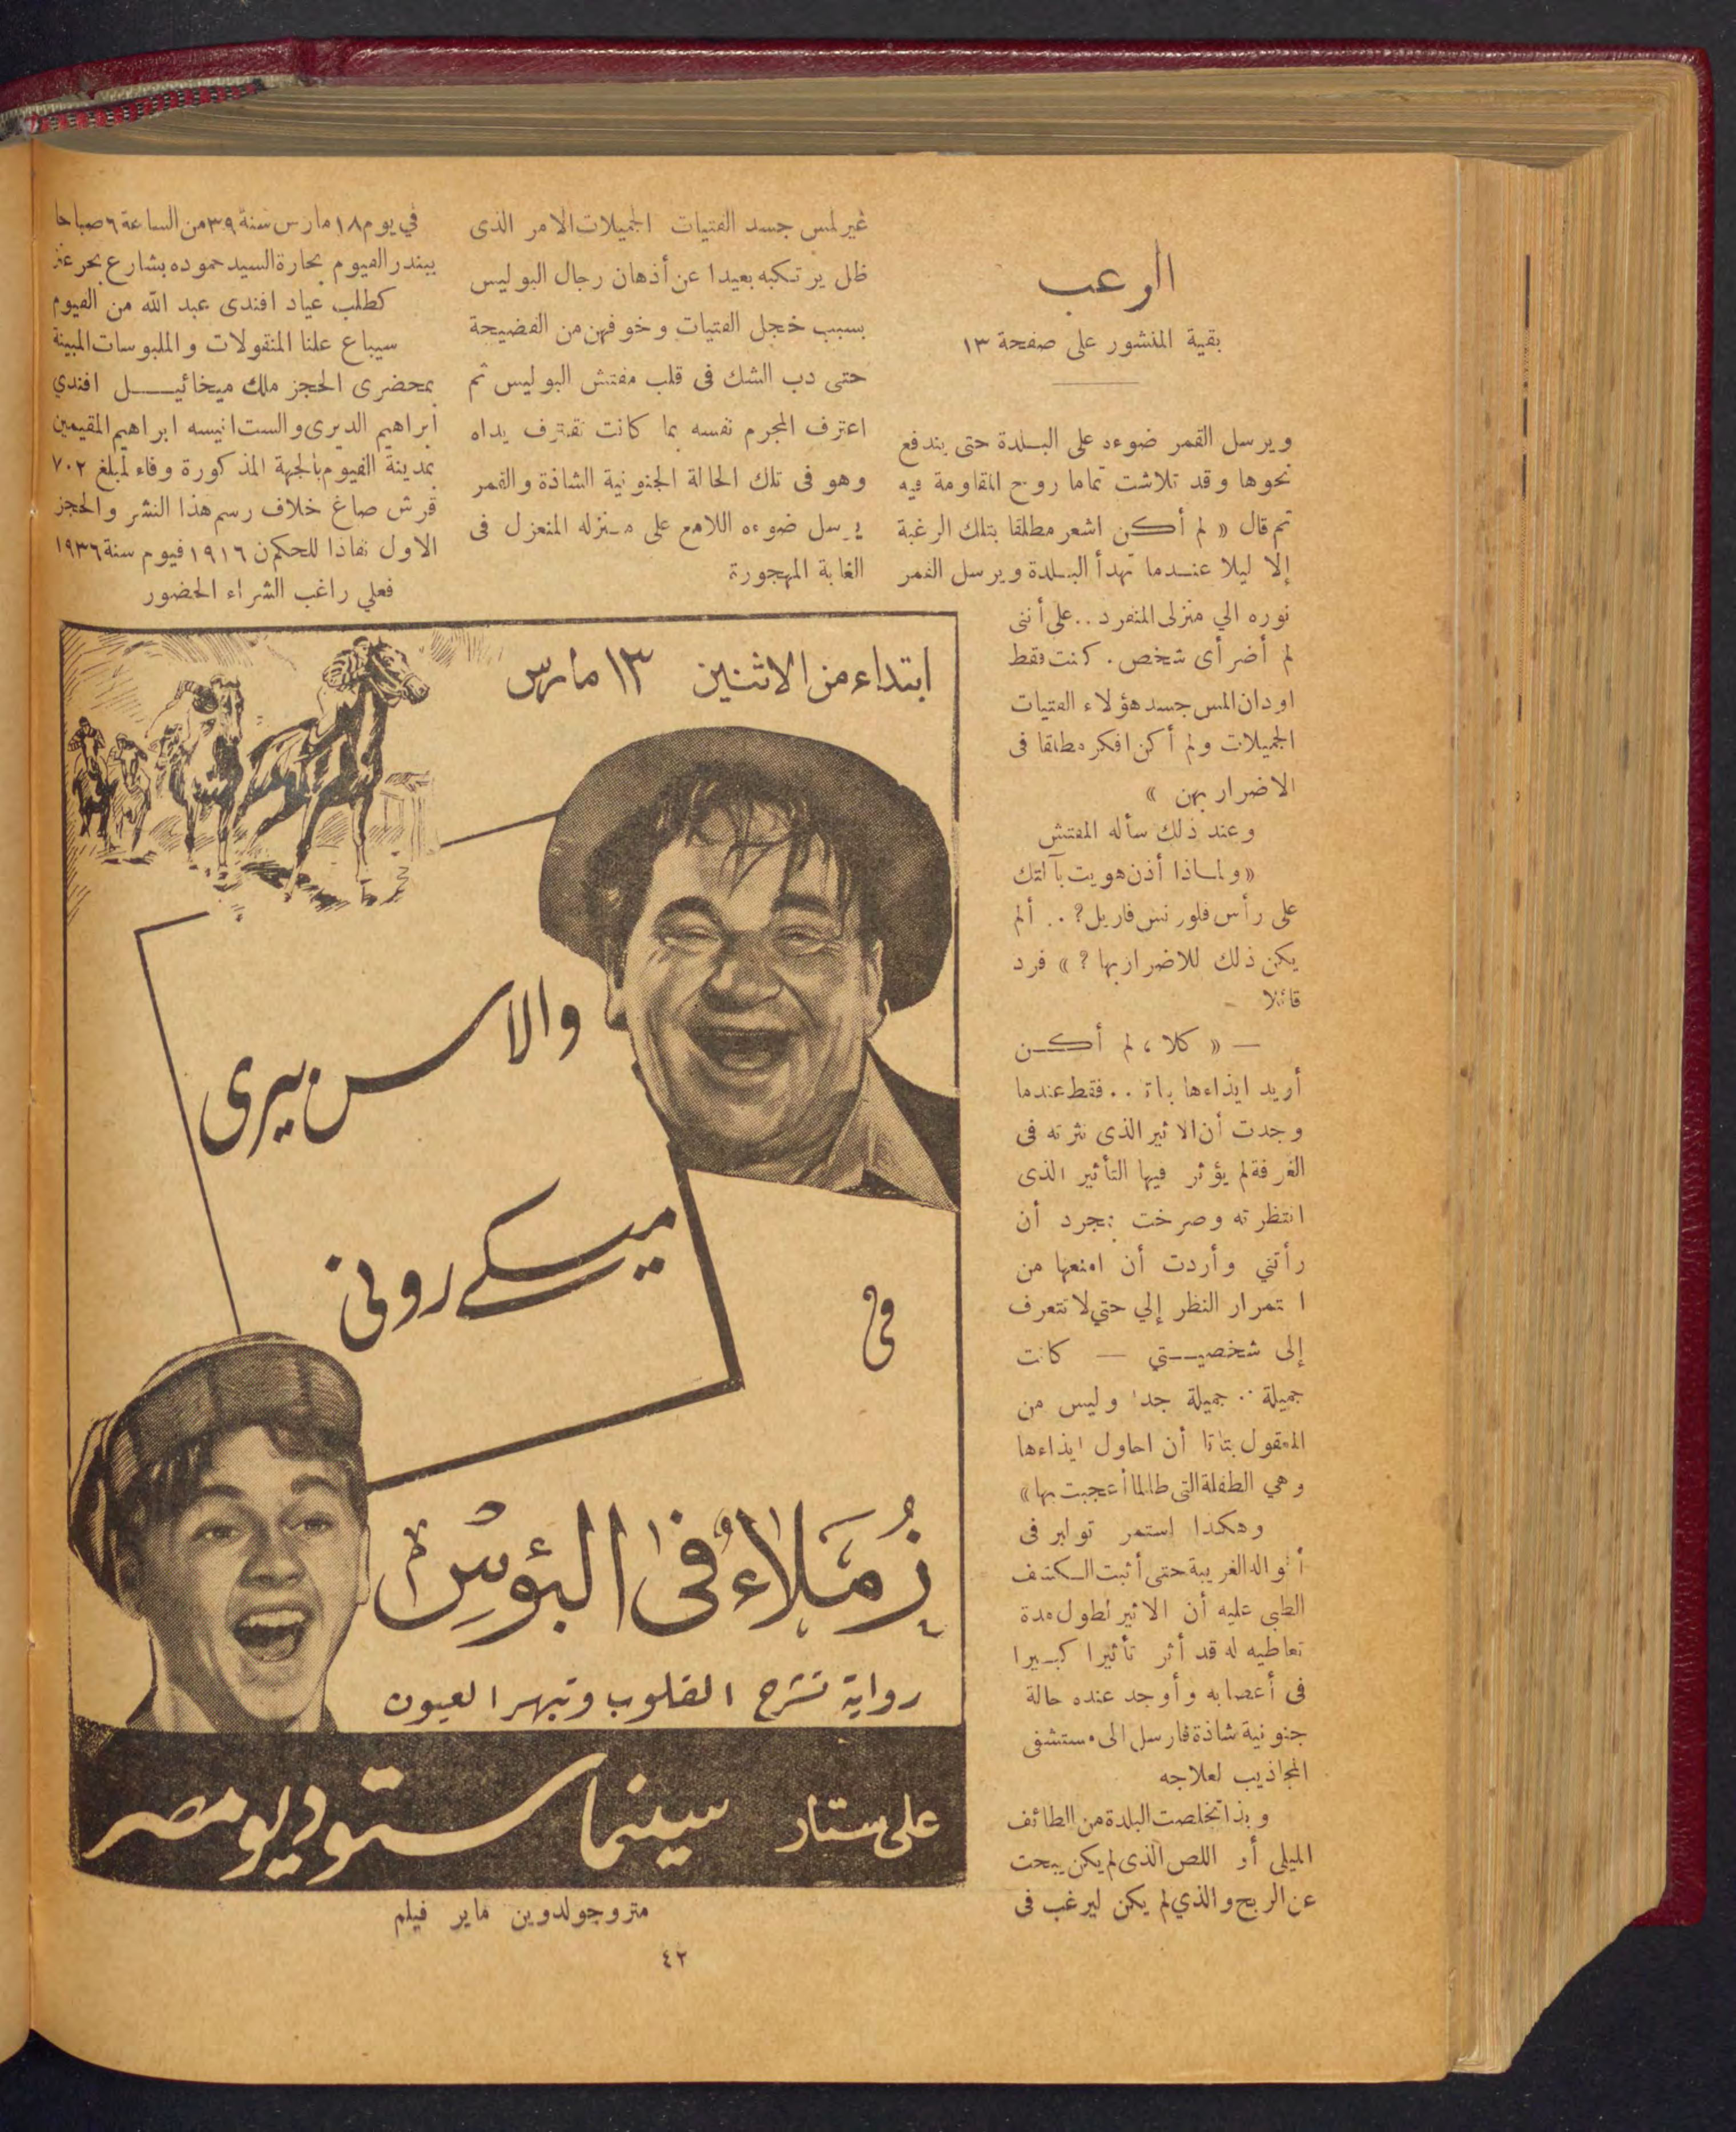 الرعب
بقية المنشور على صفحة ١٣
ويرسل القمر ضوءه على البلدة حتى يندفع
نحوها وقد تلاشت تماما روح المقاومة فيه
ثم قال « لم أكن اشعر مطلقا بتلك الرغبة
إلا ليلا عندما تهدأ البلدة ويرسل القمر
نوره الي منزلى المنفرد .. على أننى
لم أضر أى شخص . كنت فقط
اود ان المس جسد هؤلاء الفتيات
الجميلات ولم أكن افكر مطلقا فى
الاضرار بهن »
وعند ذلك سأله المفتش
« ولماذا أذن هويت بآلتك
على رأس فلورنس فاريل ? .. ألم
يكن ذلك للاضرار بها ? » فرد
قائلا -
— « كلا ، لم أكن
أريد ايذاءها بأة .. فقط عندما
وجدت أن الاثير الذى نثرته فى
الغرفة لم يؤثر فيها التأثير الذى
انتظرته وصرخت بمجرد أن
رأتني وأردت أن امنعها من
ا تمرار النظر إلي حتي لا تتعرف
إلى شخصيتي — كانت
جميلة .. جميلة جدا وليس من
المعقول بتاتا أن احاول ايذاءها
وهي الطفلة التى طالما أعجبت بها »
وهكذا استمر توابر فى
أقواله الغريبة حتى أثبت الكشف
الطبى عليه أن الاثير لطول مدة
تعاطيه له قد أثر تأثيرا كبيرا
فى أعصابه وأوجد عنده حالة
جنونية شاذة فارسل الى مستشفى
المجاذيب لعلاجه
وبذا تخلصت البلدة من الطائف
الليلى أو اللص الذى لم يكن يبحث
عن الربح والذي لم يكن ليرغب فى
غير لمس جسد الفتيات الجميلات الامر الذى
ظل يرتكبه بعيدا عن أذهان رجال البوليس
بسبب خجل الفتيات وخوفهن من الفضيحة
حتى دب الشك فى قلب مفتش البوليس ثم
اعترف المجرم نفسه بما كانت تقترف يداه
وهو فى تلك الحالة الجنونية الشاذة والقمر
يرسل ضوءه اللامع على منزله المنعزل فى
الغابة المهجورة
في يوم ١٨ مارس سنة ٣٩ من الساعة ٦ صباحا
ببندر الفيوم بحارة السيد حموده بشارع بحر عنز
كطلب عياد افندى عبد الله من الفيوم
سيباع علنا المنقولات والملبوسات المبينة
بمحضرى الحجز ملك ميخائيل افندي
ابراهيم الديرى والست انيسه ابراهيم المقيمين
بمدينة الفيوم بالجهة المذكورة وفاء لمبلغ ٧٠٢
قرش صاغ خلاف رسم هذا النشر والحجز
الاول نفاذا للحكم ن ١٩١٦ فيوم سنة ١٩٣٦
فعلي راغب الشراء الحضور
ابتداء من الاثنين ١٣ مارس
والاس بيرى
ميكى رونى
فى
زُمَلاءٌ فى البؤسِ
رواية تشرح القلوب وتبهر العيون
على ستار سينما ستوديو مصر
مترو جولدوين ماير فيلم
٤٢